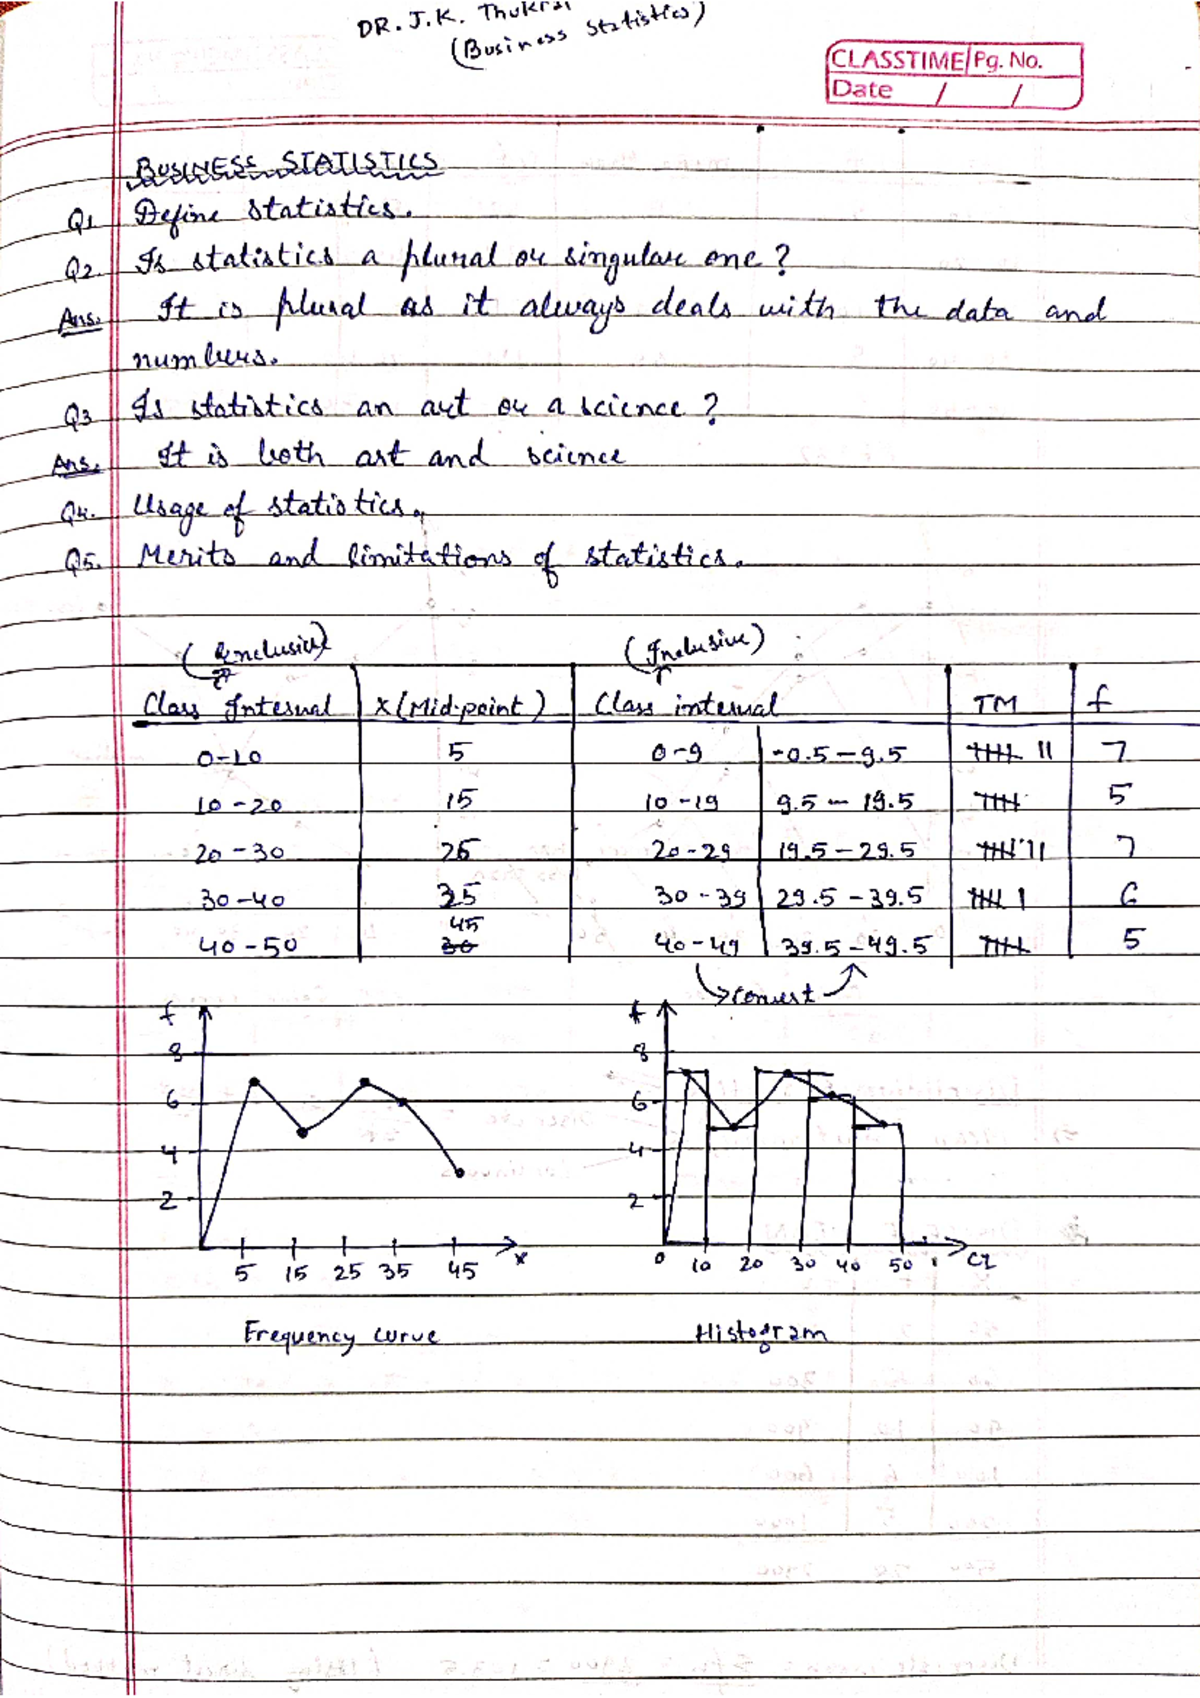 DR. J.K. Thukral
(Business Statistics)
CLASSTIME Pg. No.
Date / /
BUSINESS STATISTICS
Q1 Define statistics.
Q2. Is statistics a plural or singular one?
Ans. It is plural as it always deals with the data and
numbers.
Q3 Is statistics an art or a science?
Ans. It is both art and science
Q4. Usage of statistics.
Q5. Merits and limitations of statistics.
(Inclusive)
Class Interval X(Mid-point) Class interval TM f
0-10 5 0-9 -0.5-9.5 7
10-20 15 10-19 9.5-19.5 5
20-30 25 20-29 19.5-29.5 7
30-40 35 30-39 29.5-39.5 6
40-50 45 30 40-49 39.5-49.5 5
convert
f
8
6
4
2
5 15 25 35 45 x
Frequency curve
f
8
6
4
2
0 10 20 30 40 50 CI
Histogram